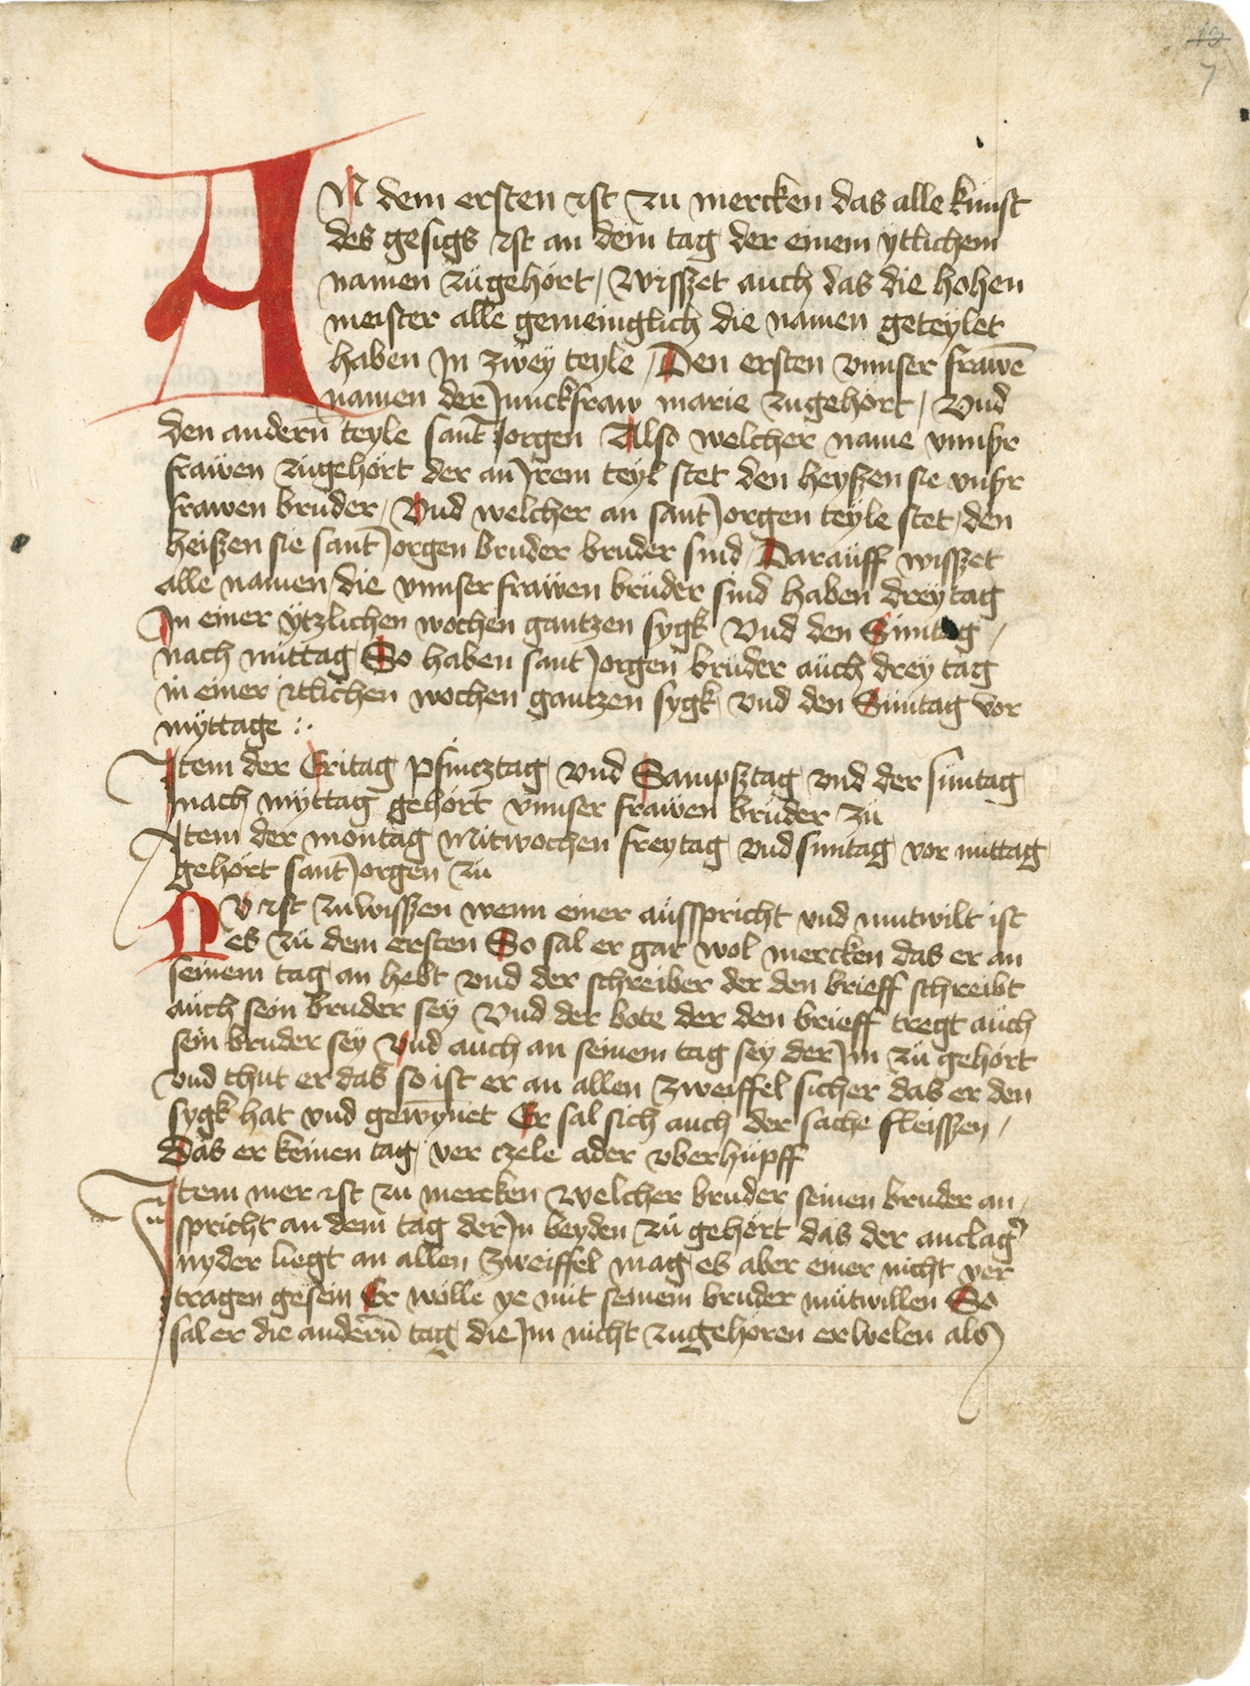 7
AN dem ersten ist zu mercken das alle kunst
des gesigs ist an dem tag der einem ytlichem
namen zugehört / Wisszet auch das die hohen
meister alle gemeinglich die namen geteylet
haben Jn zwey teyle / Den ersten vnnser frawē
namen der Junckfraw marie zugehört / Vnd
den andern teyle sant Jorgen Also welcher name vnnsr
frawen zugehört der an Jrem teyl stet den heyszen sie vnsr
frawen bruder / Vnd welcher an sant Jorgen teyle stet / den
heiszen sie sant Jorgen bruder bruder sind Darauff wisszet
alle namen / die vnnser frawen bruder sind haben drey tag
Jn einer ytzlichen wochen gantzen sygk Vnd den Sunntag /
nach mittag So haben sant Jorgen bruder auch drey tag
in einer itlichen wochen gantzen sygk vnd den Sunntag vor
myttage :.
Jtem der Eritag Pfincztag vnd Sampsztag vnd der suntag
nach myttag gehört vnnser frawen bruder zu
Jtem der montag Mitwochen freytag vnd suntag vor mittag
gehört sant Jorgen zu
NV ist zu wisszen wenn einer ausspricht vnd mutwilt ist
es zu dem ersten So sal er gar wol mercken das er an
seinem tag an hebt vnd der schreiber der den brieff schreibt
auch sein bruder sey Vnd der bote der den brieff tregt auch
sein bruder sey Vnd auch an seinem tag sey der Jm zu gehört
vnd thut er das so ist er an allen zweiffel sicher das er den
sygk hat vnd gewynet Er sal sich auch der sache fleisszen /
Das er keinen tag ver czele ader vberhupff
Jtem mer ist zu mercken Welcher bruder seinen bruder an
spricht an dem tag der Jn beyden zu gehört das der anclag̕
nyder liegt an allen zweiffel mag es aber einer nicht ver
tragen gesein Er wölle ye mit seinem bruder mutwillen So
sal er die andern tag die Jm nicht zugehören erwelen als